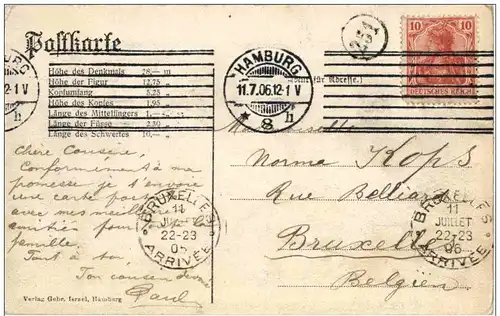 Postkarte
Höhe des Denkmals 28,— m
Höhe der Figur 12,75 „
Kopfumfang 5,25 „
Höhe des Kopfes 1,95 „
Länge des Mittelfingers 1,— „
Länge der Füsse 2,30 „
Länge des Schwertes 10,— „
HAMBURG
11.7.06.12-1 V
* 8 h
für Adresse.)
251
10 10
DEUTSCHES REICH
BURG
12-1 V
h
Chère Cousine,
Conformément à ma
promesse je t'envoie
une carte
avec mes meilleures
amitiés pour la
famille.
Tout à toi,
Ton cousin
Paul
Mademoiselle
Norma Kops
Rue Belliard
Bruxelles
Belgien
BRUXELLES
11
JUILLET
22-23
06
ARRIVÉE
BRUXELLES
11
JUILLET
22-23
06
ARRIVÉE
Verlag Gebr. Israel, Hamburg